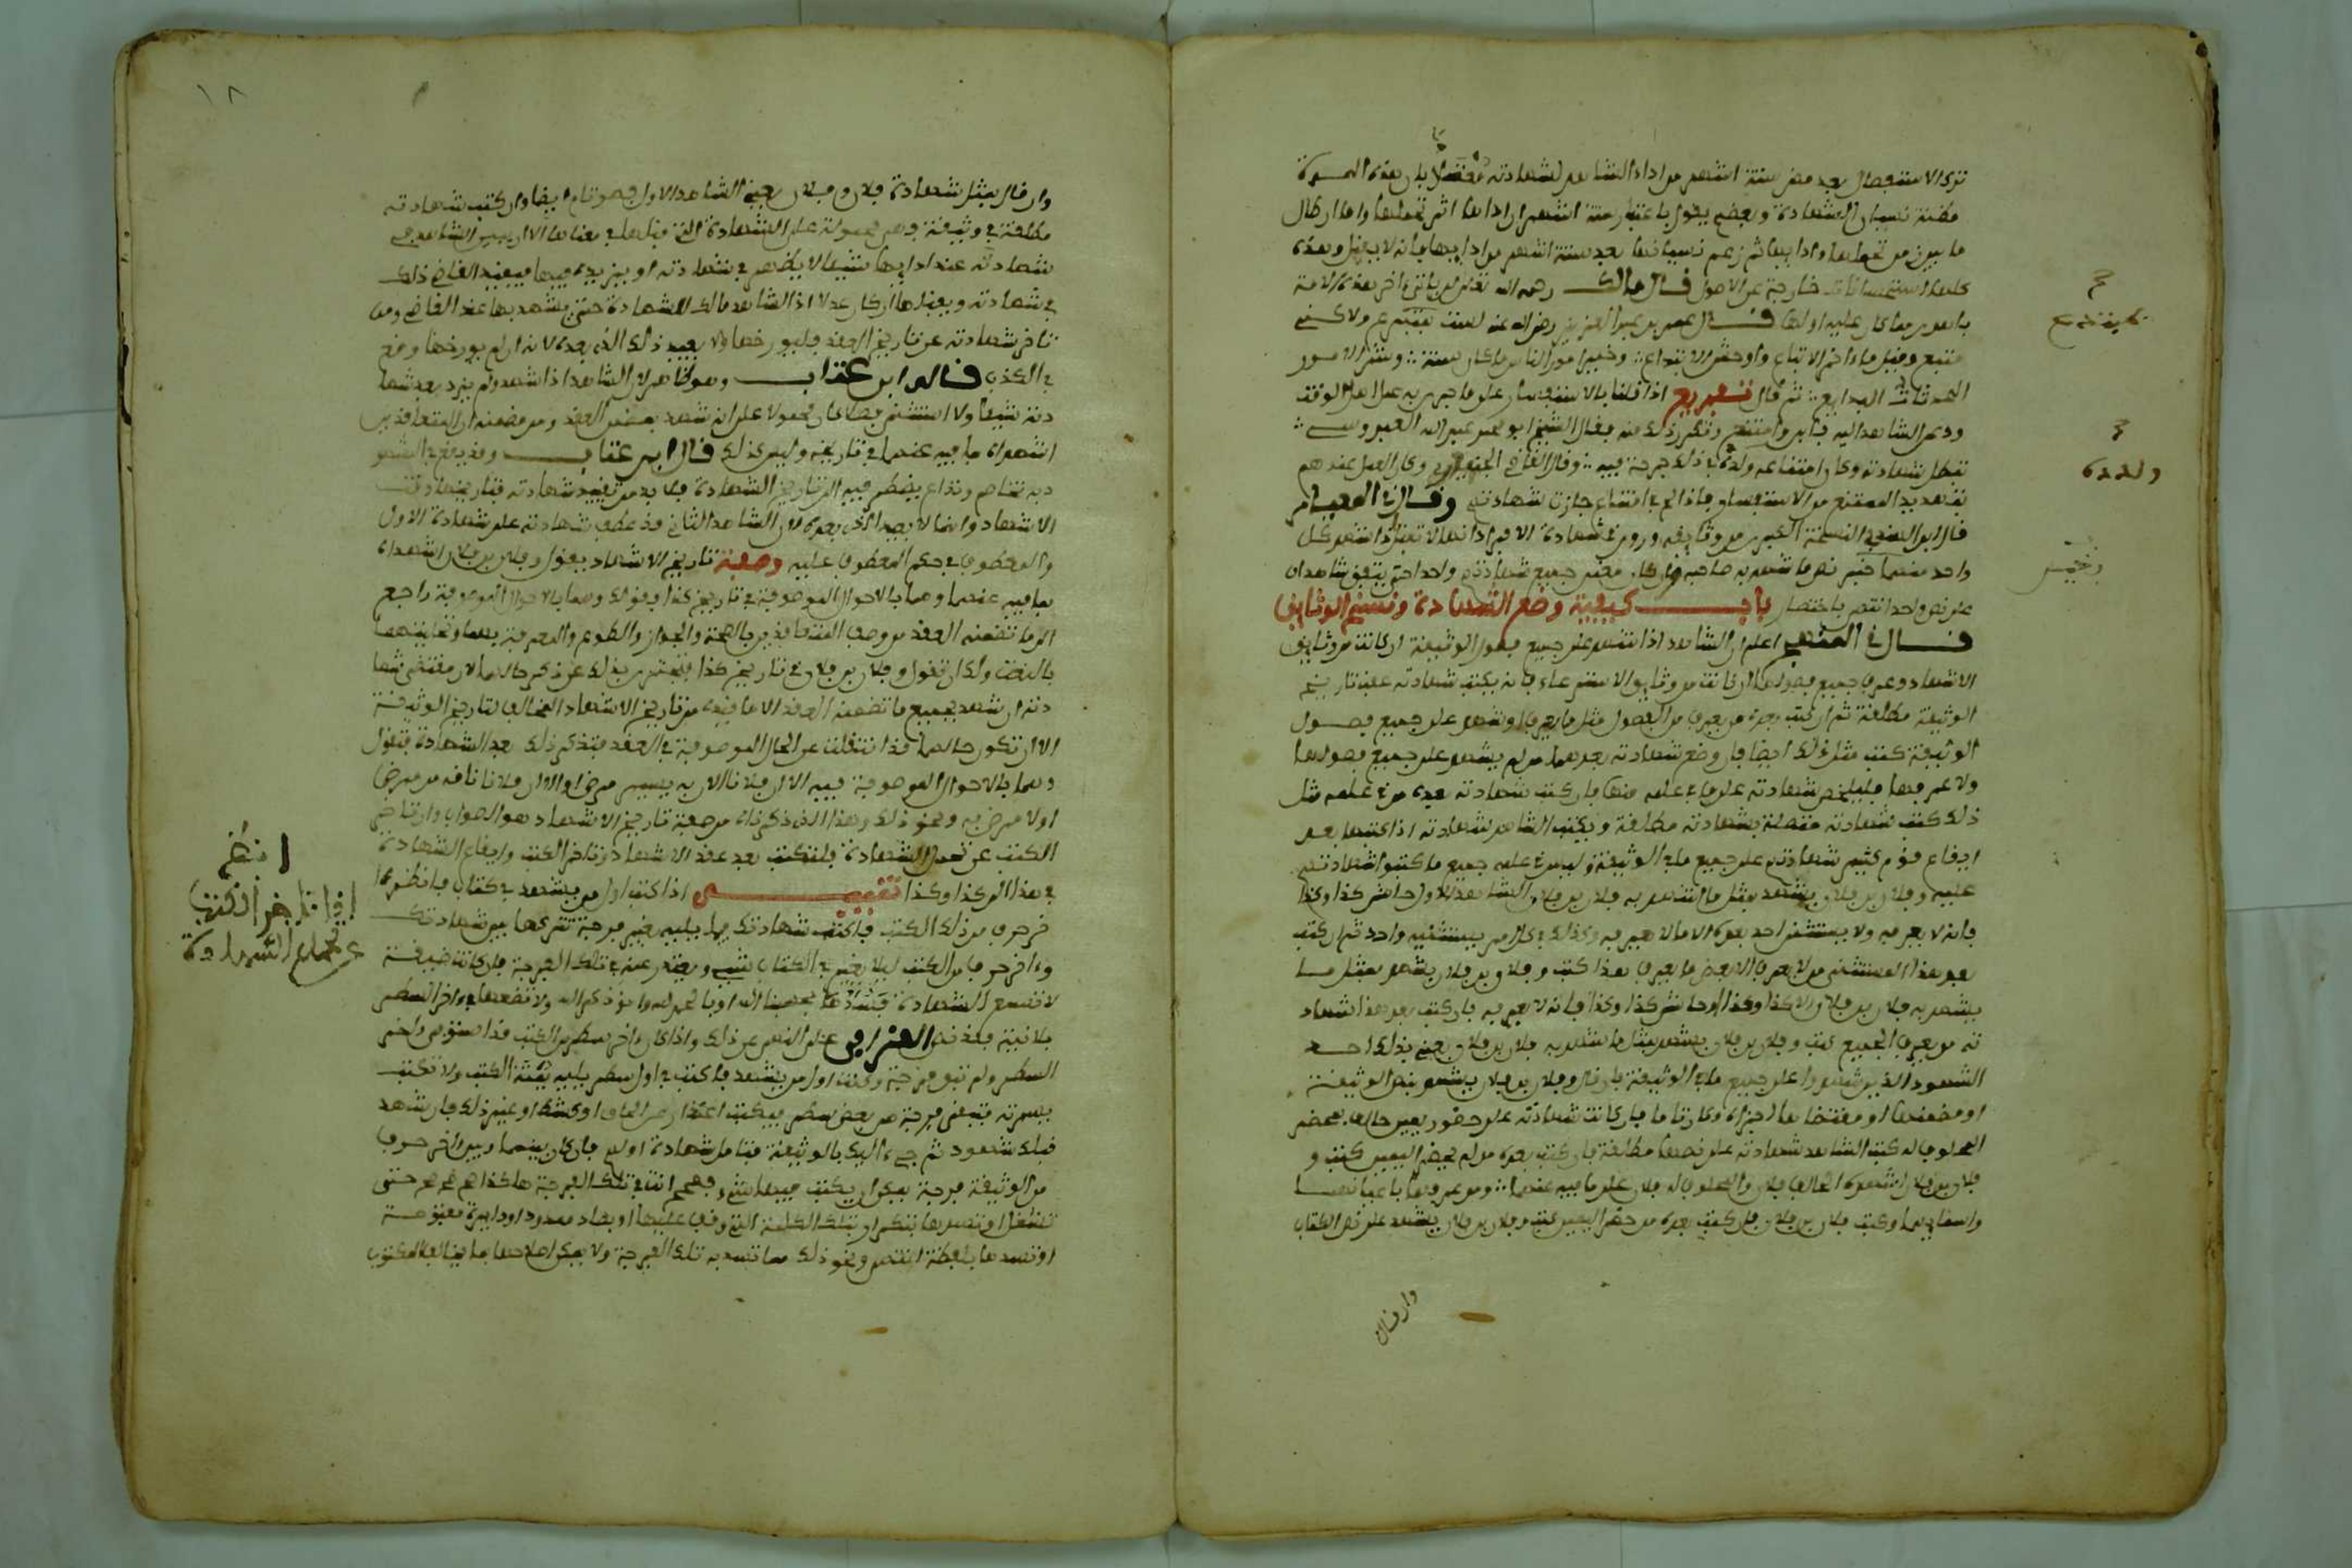 ترى الاستفصال بعد مضي ستة اشهر من اداء الشاهد لشهادته بان هذه المدة
مظنة نسيان الشهادة وبعضهم يقول باعتبار ستة اشهر ان اداها اثر تحملها واما ان طال
ما بين من تحملها وادايها ثم زعم نسيانها بعد ستة اشهر من ادايها فانه لا يقبل وهذه
كلها استحسانات خارجة عن الاصول قال مالك رحمه الله تعالى لن ياتي اخر هذه الامة
باهدى مما كان عليه اولها قال عمر بن عبد العزيز رضي الله عنه لست بمبتدع ولاكني
متبع وقبل ما داخر الاتباع واوحش الابتداع وخير امور الناس ما كان سنة وشر الامور
المحدثات البدايع ثم قال تفريع اذا قلنا بالاستفسار على ما جرى به عمل اهل الوقت
ودعي الشاهد اليه فابى وامتنع وتكرر ذلك منه فقال الشيخ ابو محمد عبد الله العبدوسي
تبطل شهادته وكان امتناعه ولده في ذلك جرحة فيه وقال القاضي وكان العمل عندهم
بتهديد الممتنع من الاستفسار فاذا لج في امتناع جازت شهادته وقال في المعيار
قال ابن الهندي النسخة الكبرى من وثايقه وروي في شهادة ان ادانها لا تقبل اذا شهد كل
واحد منهما حتى نص ما شهد به صاحبه معنى جميع شهادتهم واحد حتى يتفق شاهدان
على نص واحد انتهى باختصار باب كيفية وضع الشهادة ونسخ الوثايق
قال في المنهج اعلم ان الشاهد اذا شهد على جميع فصول الوثيقة ان كانت من وثايق
الاشهاد وعرف جميع فصولها ان كانت من وثايق الاسترعاء فانه يكتب شهادته عقب تاريخ
الوثيقة مطلقة ثم ان كتب بعده من يعرف من الفصول مثل ما يعرف او شهد على جميع فصول
الوثيقة كتب مثل ذلك ايضا فان وضع شهادته بعدهما من لم يشهد على جميع فصولها
ولا عرفها فليلخص شهادته على ما في علمه منها فان كتب شهادته بعده من في علمه مثل
ذلك كتب شهادته متصلة بشهادته مطلقة ويكتب الشاهد شهادته اذا كتبها بعد
ايقاع قوم كثير شهادتهم على جميع ما في الوثيقة وليس في علمه جميع ما كتبوا شهادتهم
عليه وفلان بن فلان يشهد بمثل ما شهد به فلان بن فلان الشاهد الاول حاشى كذا وكذا
فانه لا يعرفه ولا يستثنى احد بعده الا ما لا يعرفه وكذلك في كل امر يستثنيه واحد ثم ان كتب
بعد هذا المستثنى من لا يعرف الا بعض ما يعرف هذا كتب وفلان بن فلان يشهد بمثل ما
يشهد به فلان بن فلان الا كذا وكذا او حاشى كذا وكذا فانه لا يعرفه فان كتب بعد هذا شهاد
ته من يعرف الجميع كتب وفلان بن فلان يشهد بمثل ما شهد به فلان بن فلان يعني بذلك احد
الشهود الذين شهدوا على جميع ما في الوثيقة فان قال وفلان بن فلان يشهد بنص الوثيقة
او مضمنها او مقتضاها اجزاه وكان تاما فان كانت شهادته على حضور يمين حالف بمحضر
المحلوف له كتب الشاهد شهادته على نصها مطلقة فان كتب بعده من لم يحضر اليمين كتب و
فلان بن فلان اشهده الحالف فلان والمحلوف له فلان على ما فيه عنهما ومن عرفهما باعيانهما
واسمايهما وكتب فلان بن فلان فان كتب بعده من حضر اليمين كتب وفلان بن فلان يشهد على نص الكتاب
بمبتدع
ولده
وان قال
١٨
وان قال بمثل شهادة فلان وفلان يعني الشاهد الاول فهو تام ايضا وان كتب شهادته
مطلقة في وثيقة فهي محمولة على الشهادة التي قبلها في معناها الا ان يبين الشاهد في
شهادته عند ادايها شيئا لا يظهر في شهادته او يزيده فيها فيقيد القاضي ذلك
في شهادته ويقبلها ان كان عدلا اذ الشاهد مالك للشهادة حتى يشهد بها عند القاضي ومن
تاخر شهادته عن تاريخ العقد فليورخها ولا يعيد ذلك الذي بعده لانه ان لم يورخها وقع
في الكذب قال ابن عتاب وهو ظاهر لان الشاهد اذا شهد ولم يزد بعد شها
دته شيئا ولا استثنى فصلا كان محمولا على ان شهد بمضمن العقد ومن مضمنه ان المتعاقدين
اشهداه بما فيه عنهما في تاريخه وليس كذلك قال ابن عتاب وقد يقع في الشهو
د تخاصم ونزاع يضطر فيه الى تاريخ الشهادة فلا بد من تقييد شهادته بتاريخها وقت
الاشهاد وانما لا يعيد الذي بعده لان الشاهد الثاني قد عطف شهادته على شهادة الاول
والمعطوف في حكم المعطوف عليه وصفة تاريخ الاشهاد يقول وفلان بن فلان اشهداه
بما فيه عنهما وهما بالاحوال الموصوفة في تاريخ كذا فقوله وهما بالاحوال الموصوفة راجع
الى ما تضمنه العقد من وصف المتعاقدين بالصحة والجواز والطوع والمعرفة بهما
بالنعت ولك ان تقول وفلان بن فلان في تاريخ كذا فتجتزى بذلك عن ذكر حالهما لان مقتضى شها
دته ان شهد بجميع ما تضمنه العقد الا ما قيده من تاريخ الاشهاد المخالف لتاريخ الوثيقة
الا ان تكون حالهما قد انتقلت عن الحال الموصوفة في العقد فتذكر ذلك بعد الشهادة فتقول
وهما بالاحوال الموصوفة فيه الا ان فلانا الان به يسير مرض او الا ان فلانا نافه من مرض
اولا مرض به ونحو ذلك وهذا الذي ذكرناه من صفة تاريخ الاشهاد هو الصواب وان تاخر
الكتب عن تحمل الشهادة فلتكتب بعد عقد الاشهاد وتاخر الكتب وايقاع الشهادة
في هذا الى كذا وكذا تنبيه اذا كنت اول من يشهد في كتاب فانظر اخر
حرف من ذلك الكتب فاكتب شهادتك فيما يليه بغير فرجة تتركها بين شهادتك
واخر حرف من الكتب ليلا يغير في الكتاب شيء ويعتذر عنه في تلك الفرجة فان كانت ضيقة
لا تسع الشهادة فسدها بحسبنا الله او بالحمد لله او ذكر الله ولا تضعها في اخر السطر
بلا نية فقد نص القرافي على النهي عن ذلك واذا كان اخر سطر من الكتب قد استوفى اخر
السطر ولم تبق فرجة وكنت اول من يشهد فاكتب في اول سطر يليه بقية الكتب ولا تكتب
بيسرته فتبقى فرجة من بعض سطر فيكتب اعذار من او كشط او غير ذلك فان شهد
قبلك شهود ثم جيء اليك بالوثيقة فتامل شهادة اولهم فان كان بينها وبين اخر حرف
من الوثيقة فرجة يمكن ان يكتب فيها شيء فهمم انت في تلك الفرجة هاكذا هم هم هم حتى
تشغل او تصديها بتكرار تلك الكلمة التي وقف عليها او بصاد ممدود او دايرة مفتوحة
او تسدها بلفظة انتهى ونحو ذلك مما تسد به تلك الفرجة ولا يمكن اصلاحها بما يخالف المكتوب
انظر
اذا تاخر الكتب
عن تحمل الشهادة